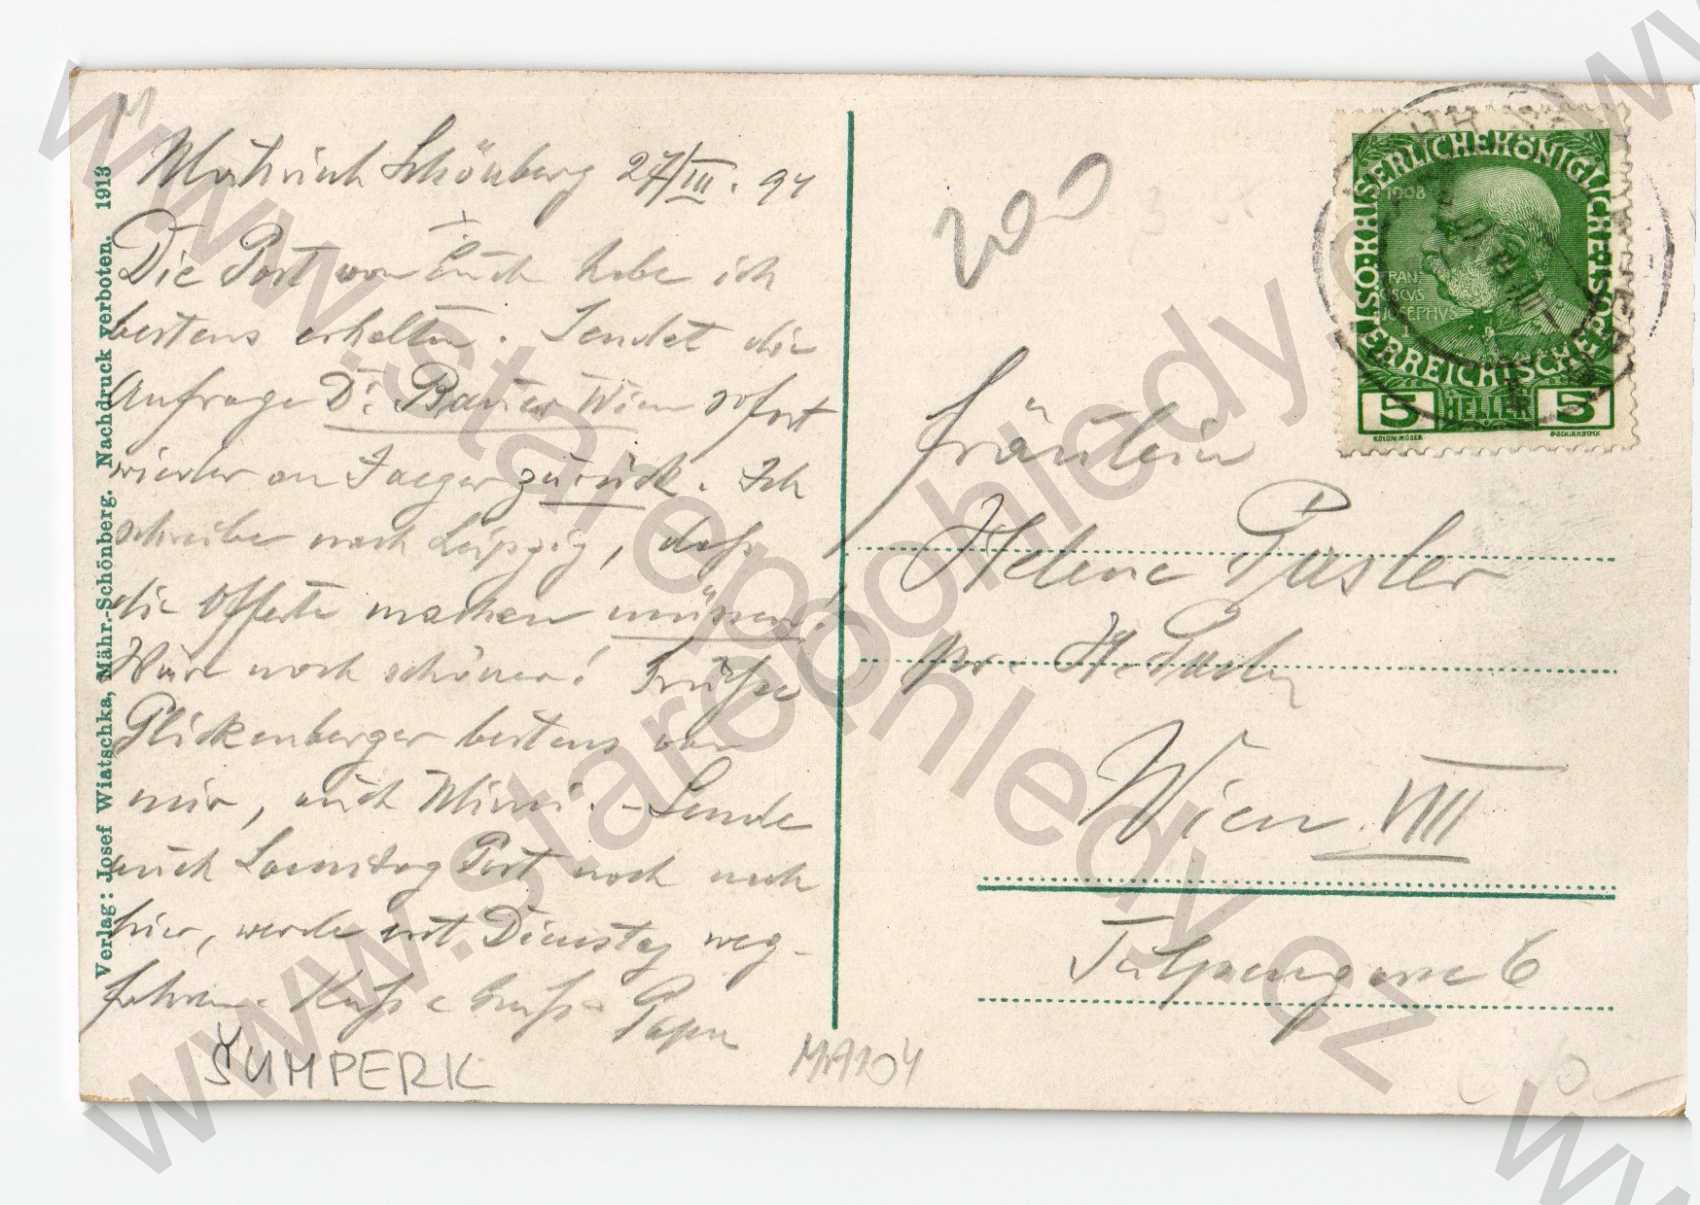 Mährisch Schönberg 27/III. 94
Die Post von Euch habe ich
bestens erhalten. Sendet die
Anfrage Dr. Bauer Wien sofort
wieder an Jaeger zurück. Ich
schreibe nach Leipzig, daß
die Offerte machen müssen!
Wäre noch schöner! Grüße
Glickenberger bestens von
mir, auch Mimi. - Sende
auch Samstag Post noch nach
hier, werde erst Dienstag weg-
fahren. Kuß e Gruß Papa
Verlag: Josef Wiatschka, Mähr.-Schönberg. Nachdruck verboten. 1913
200
KAISERLICHE KÖNIGLICHE ÖSTERREICHISCHE POST
1908
FRAN
CISCVS
IOSEPHVS
5 HELLER 5
Fräulein
Helene
pr. H.
Wien VIII
Tulpengasse 6
ŠUMPERK
MA104
www.starepohledy.cz
www.starepohledy.cz